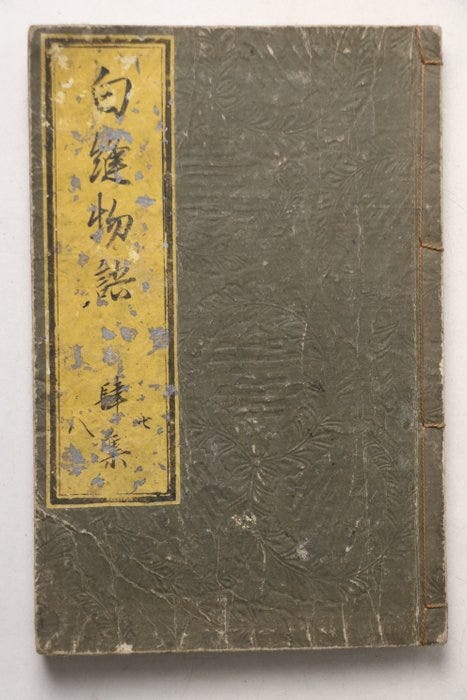 白縫物語
肆集
七
八